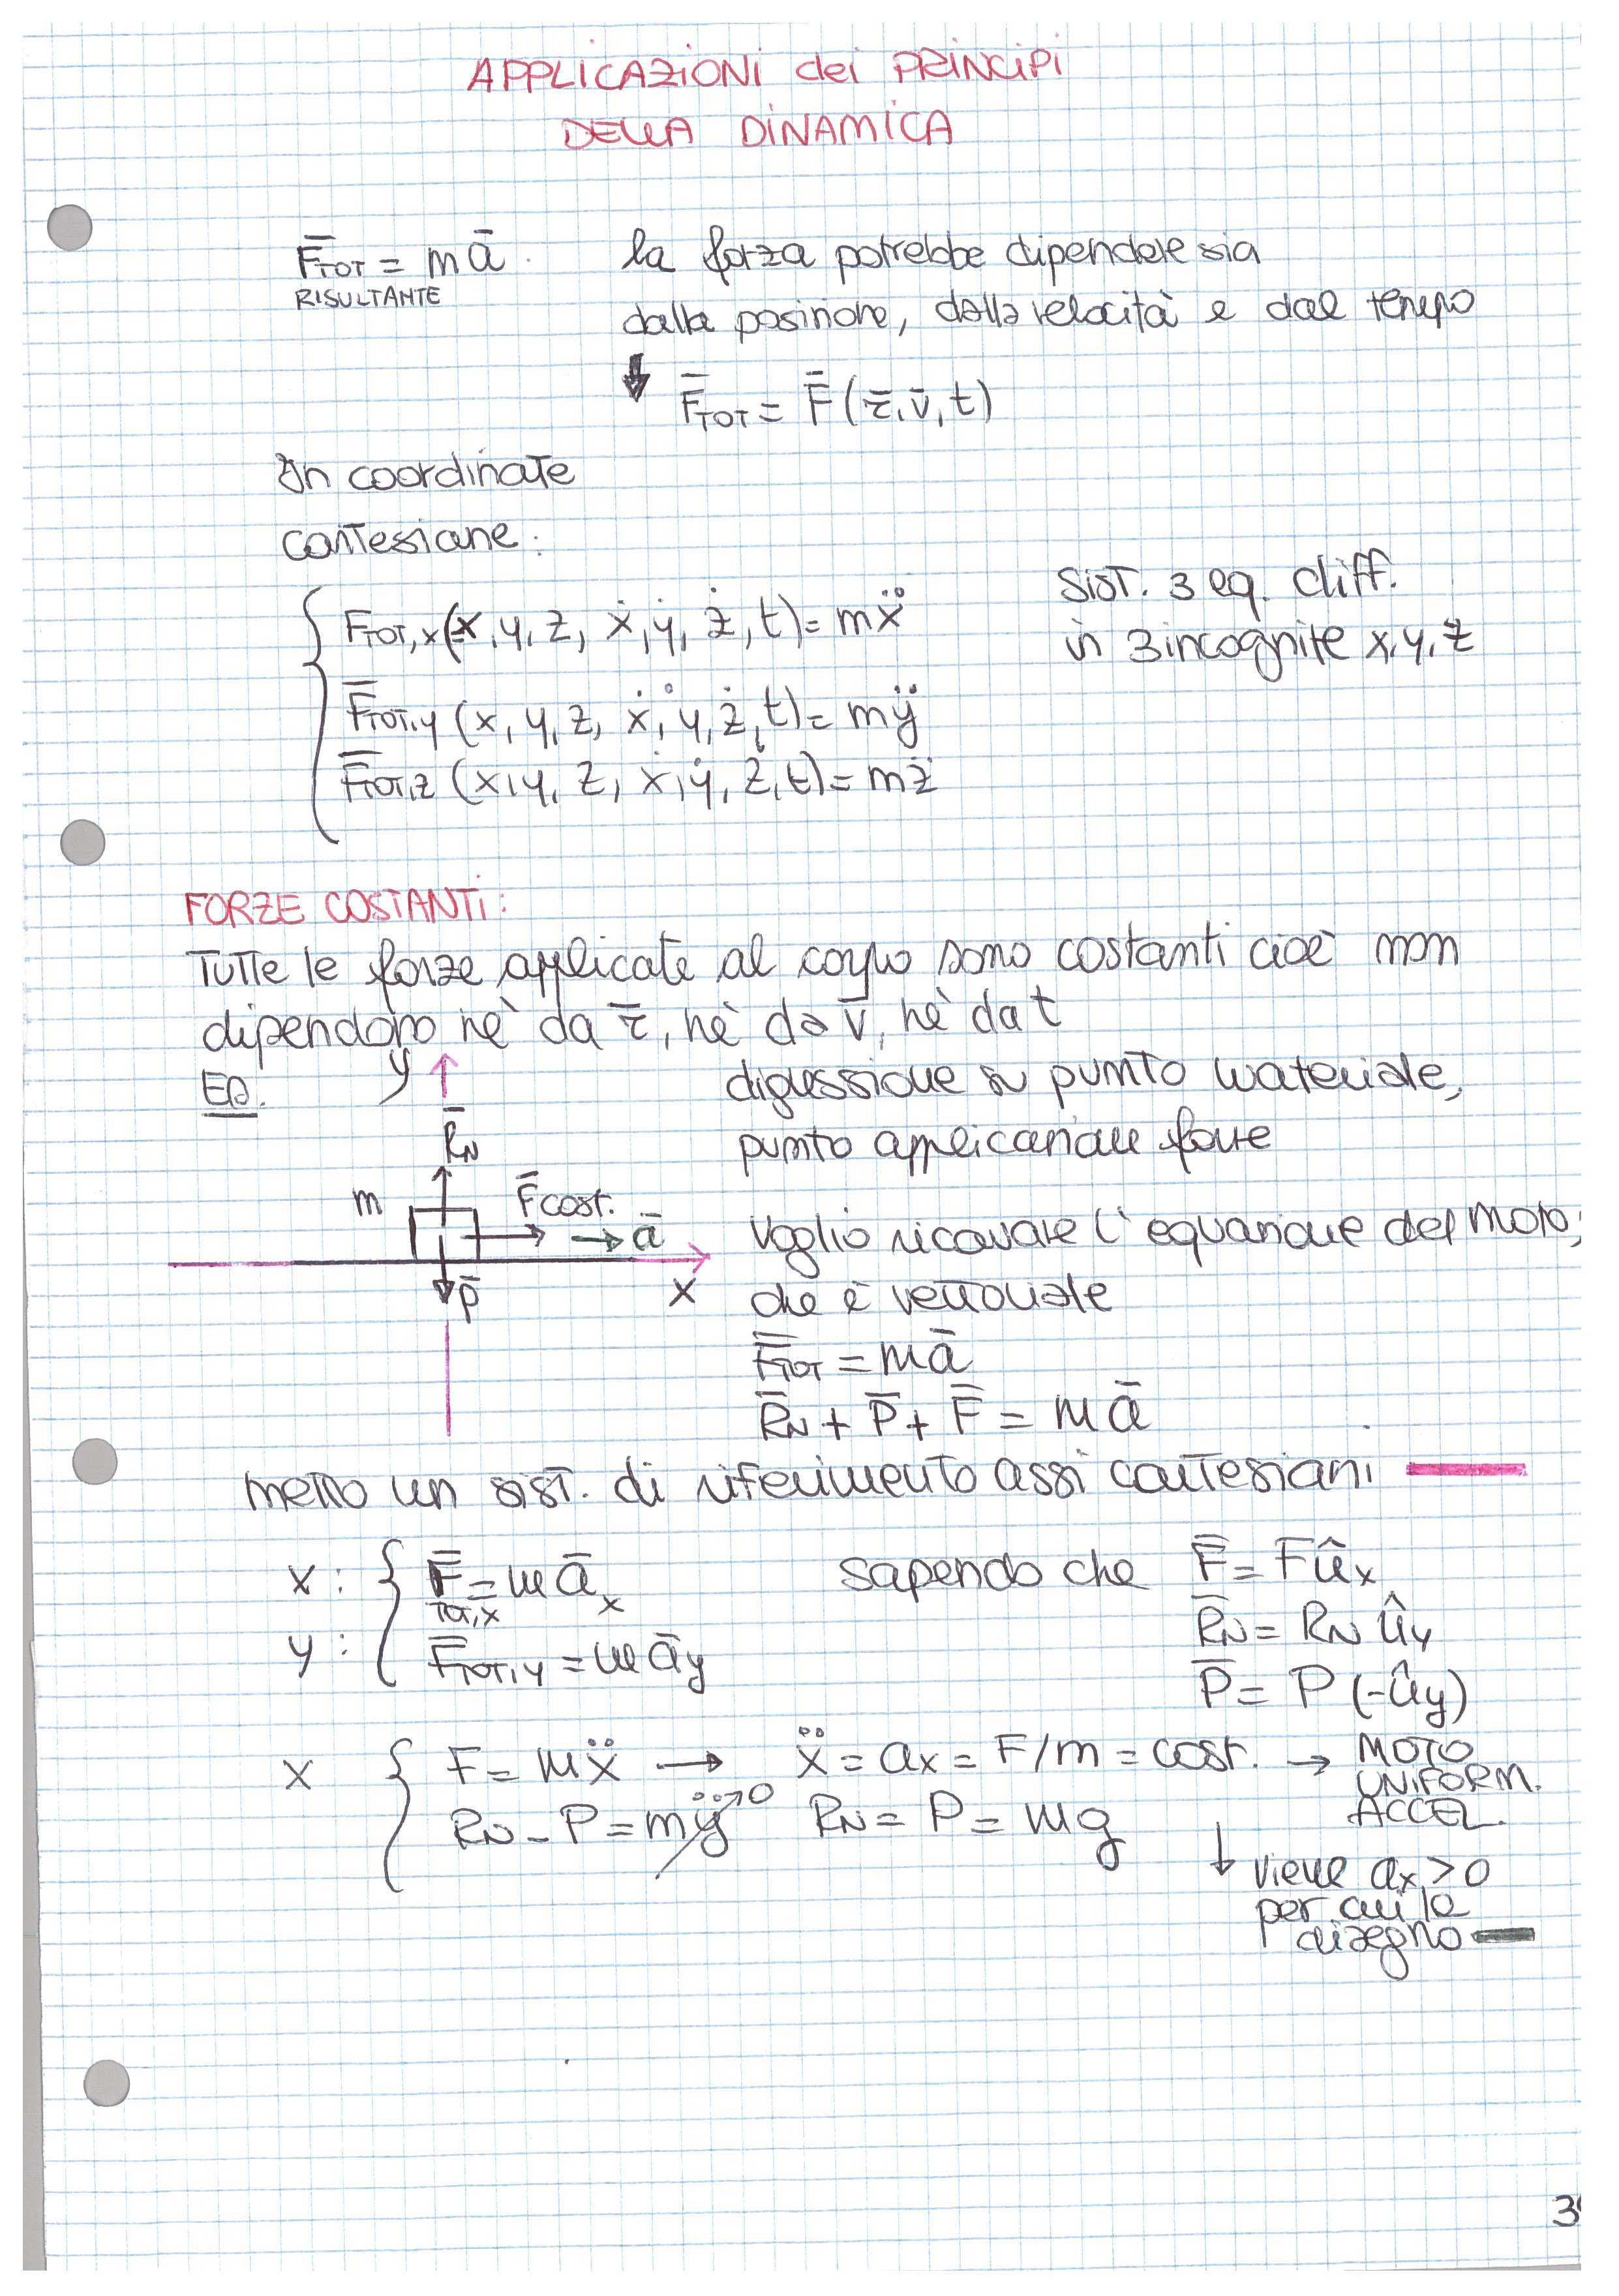 APPLICAZIONI dei PRINCIPI
DELLA DINAMICA
F̄TOT = m ā
RISULTANTE
la forza potrebbe dipendere sia
dalla posizione, dalla velocità e dal tempo
↓ F̄TOT = F̄ (r̄, v̄, t)
In coordinate
cartesiane:
FTOT,x (x, y, z, ẋ, ẏ, ż, t) = mẍ
F̄TOT,y (x, y, z, ẋ, ẏ, ż, t) = mÿ
F̄TOT,z (x, y, z, ẋ, ẏ, ż, t) = mz̈
SIST. 3 eq. diff.
in 3 incognite x, y, z
FORZE COSTANTI:
TUTTE le forze applicate al corpo sono costanti cioè non
dipendono nè da r̄, nè da v̄, nè da t
ES.
y
R̄N
m
F̄cost.
→ ā
P̄
x
digressione su punto materiale,
punto applicazione forze
Voglio ricavare l'equazione del moto,
che è vettoriale
F̄TOT = mā
R̄N + P̄ + F̄ = mā
metto un sist. di riferimento assi cartesiani
x: { F̄TOT,x = māx
y: { F̄TOT,y = māy
sapendo che F̄ = Fûx
R̄N = RN ûy
P̄ = P (-ûy)
x { F = mẍ → ẍ = ax = F/m = cost. → MOTO
UNIFORM.
ACCEL.
RN - P = mÿ→0 RN = P = mg
↓ viene ax > 0
per cui la
disegno